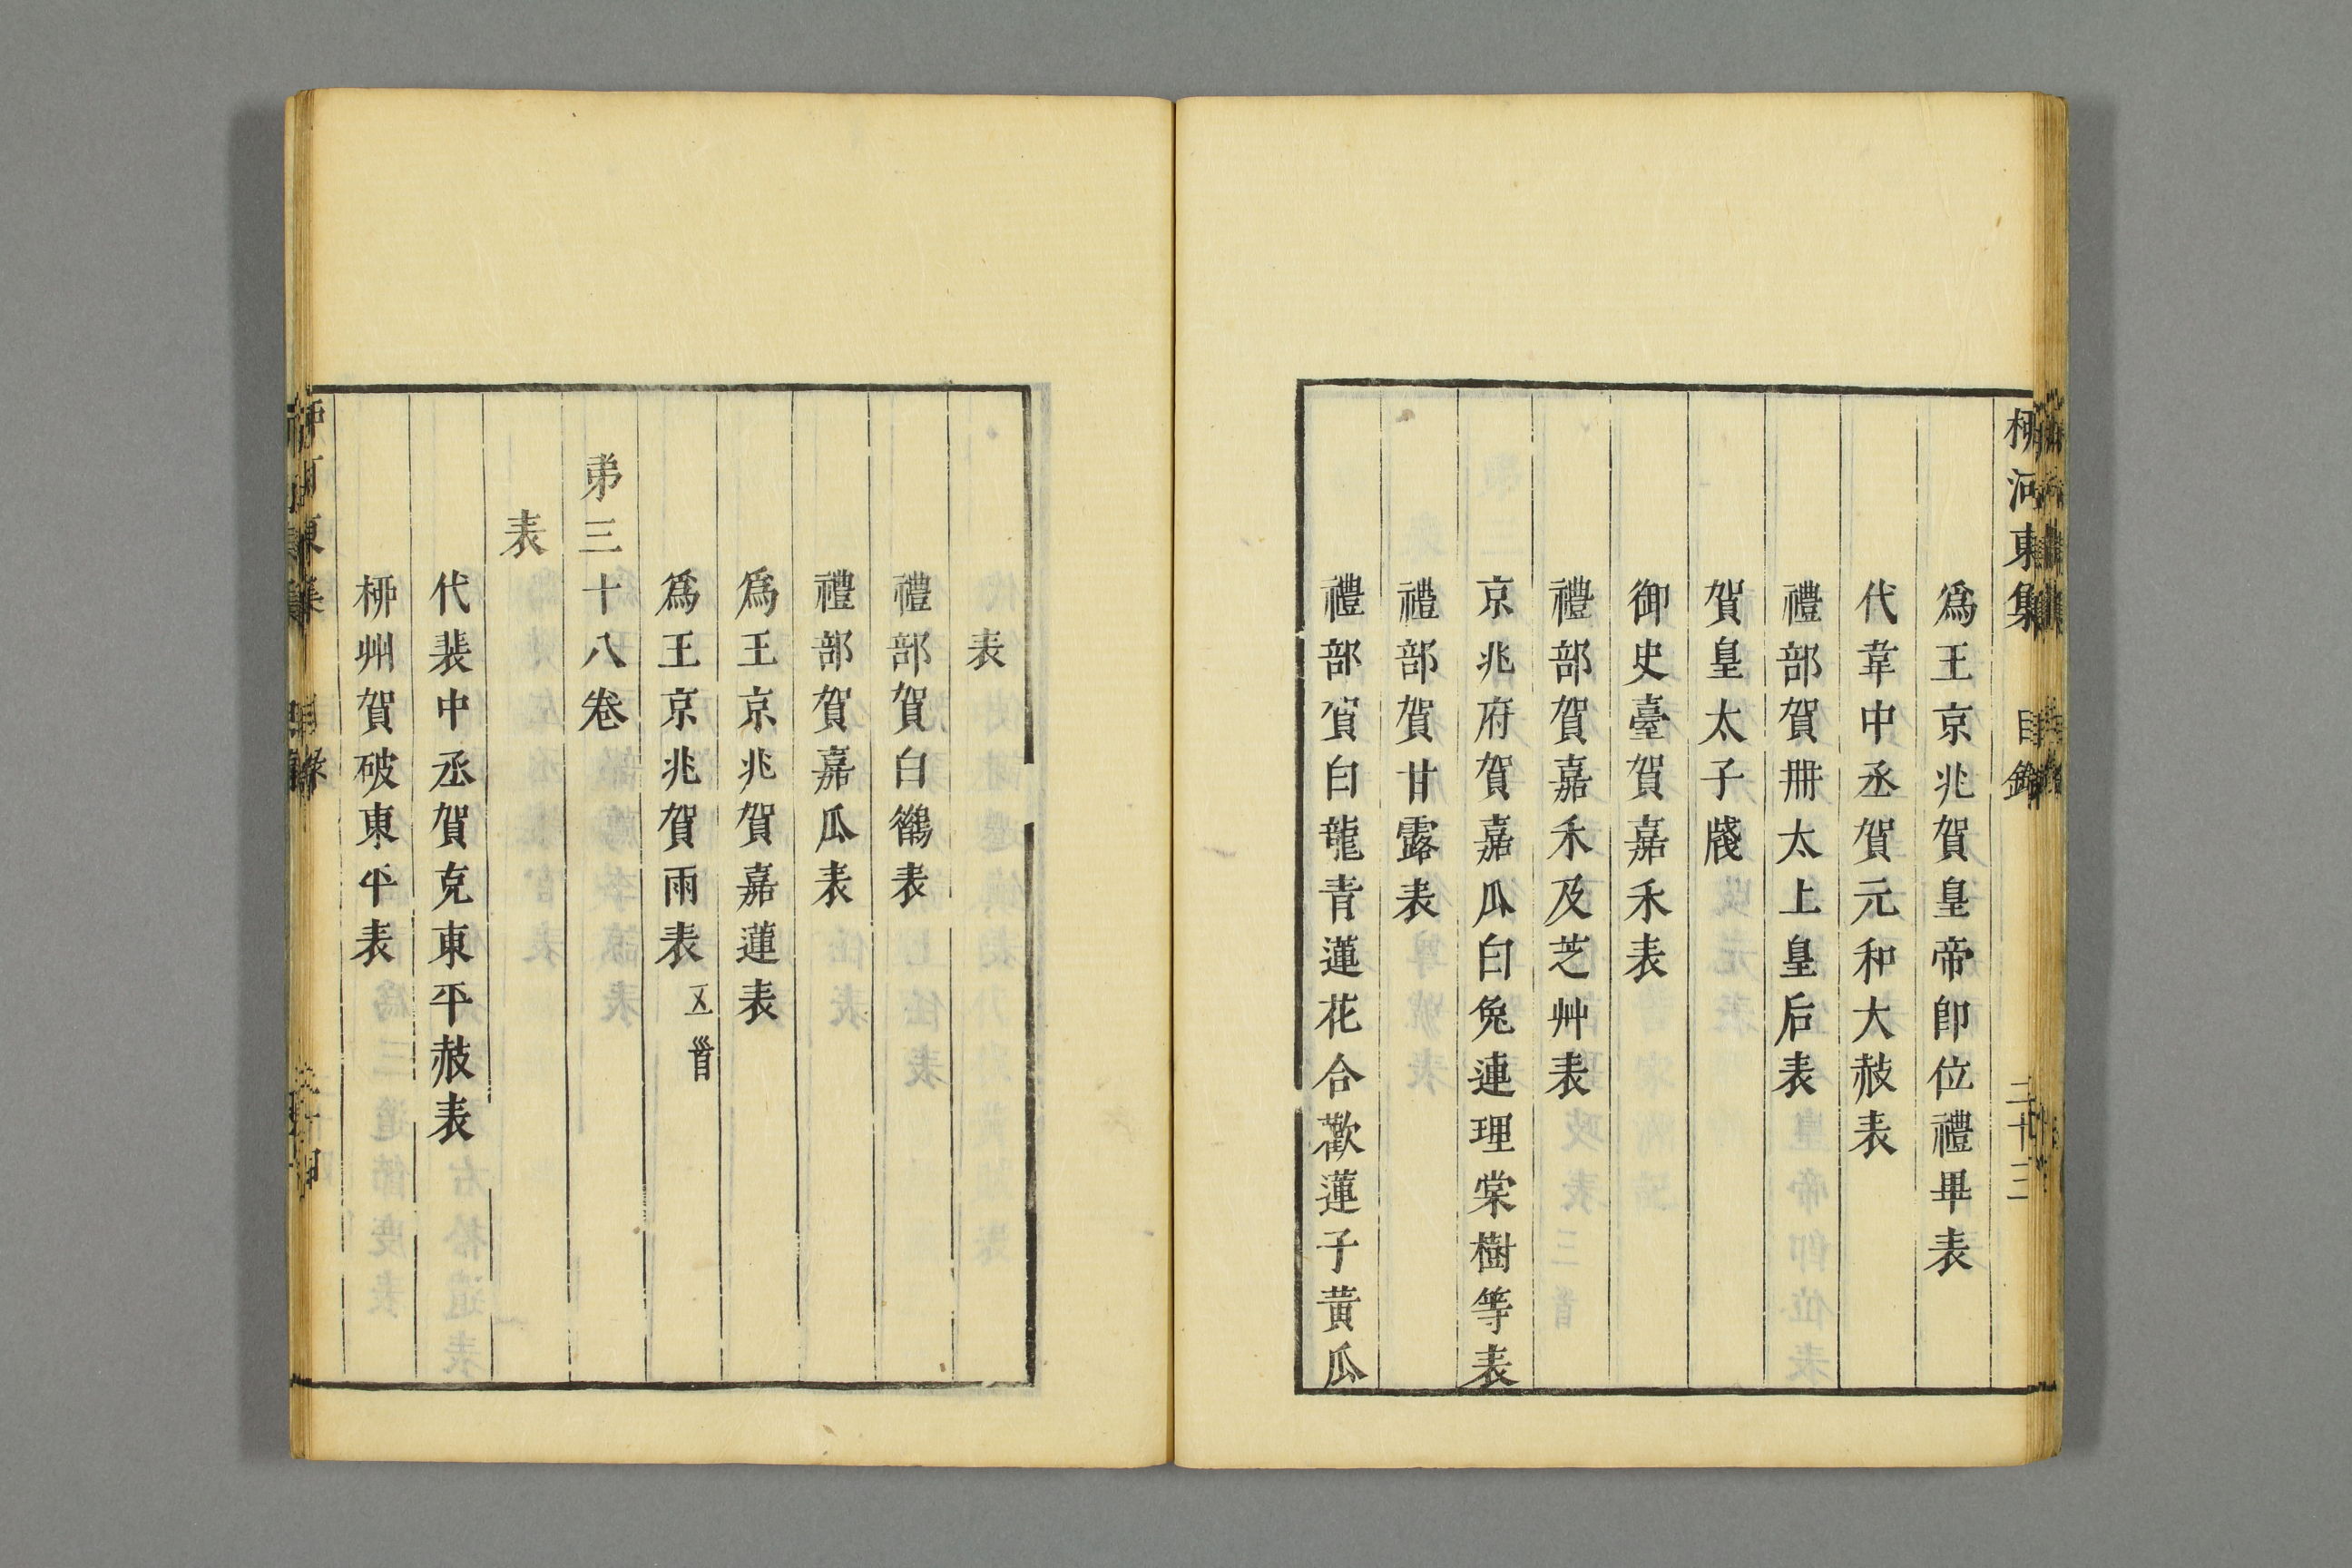 柳河東集 目錄 二十三
爲王京兆賀皇帝卽位禮畢表
代韋中丞賀元和大赦表
禮部賀冊太上皇后表
賀皇太子牋
御史臺賀嘉禾表
禮部賀嘉禾及芝艸表
京兆府賀嘉瓜白兔連理棠樹等表
禮部賀甘露表
禮部賀白龍青蓮花合歡蓮子黃瓜
表
禮部賀白鵲表
禮部賀嘉瓜表
爲王京兆賀嘉蓮表
爲王京兆賀雨表 五首
弟三十八卷
表
代裴中丞賀克東平赦表
柳州賀破東平表